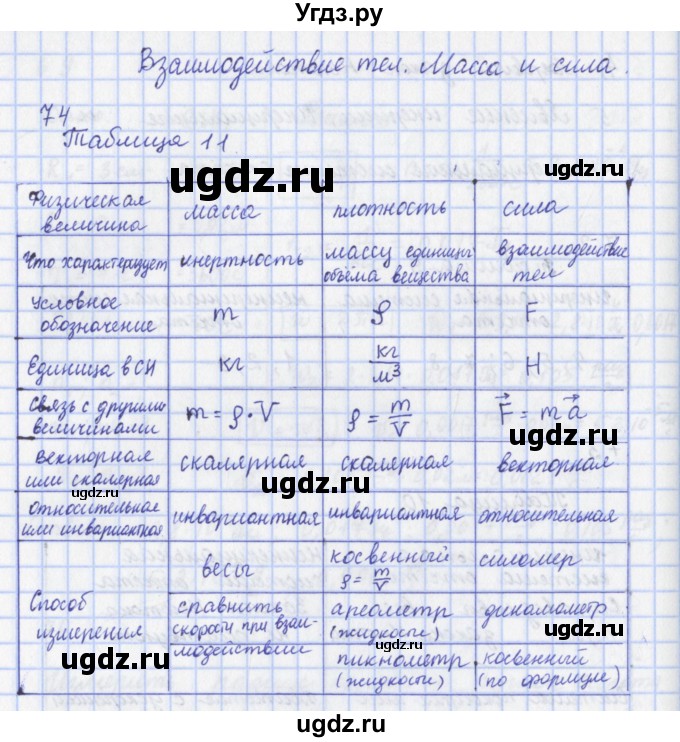 Угдз.ру
Взаимодействие тел. Масса и сила.
74
Таблица 11.
ugdz.ru
ugdz.ru
Физическая величина | масса | плотность | сила
Что характеризует | инертность | массу единицы объёма вещества | взаимодействие тел
ugdz.ru
Условное обозначение | m | ρ | F
Единица в СИ | кг | кг/м³ | Н
ugdz.ru
Связь с другими величинами | m = ρ·V | ρ = m/V | F⃗ = m a⃗
ugdz.ru
Векторная или скалярная | скалярная | скалярная | векторная
ugdz.ru
ugdz.ru
относительная или инвариантная | инвариантная | инвариантная | относительная
ugdz.ru
Способ измерения | весы | косвенный ρ = m/V | силомер
сравнить скорости при взаимодействии | ареометр (жидкости) | динамометр
ugdz.ru
ugdz.ru
пикнометр (жидкости) | косвенный (по формуле)
ugdz.ru
ugdz.ru